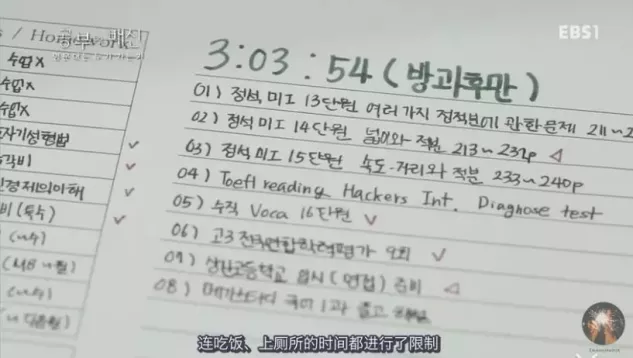 공부의 배신
EBS1
s / Homework
수업X
수업X
수업X
자기성형법
경제의이해
비 (특수)
3:03:54 (방과후만)
01) 정석, 미Ⅰ 13단원 여러가지 정적분에 관한문제 211~2
02) 정석 미Ⅰ 14단원 넓이와 적분 213~232p
03) 정석 미Ⅰ 15단원 속도·거리와 적분 233~240p
04) Toefl reading Hackers Int. Diagnose test
05) 수직 Voca 16단원 ✓
06) 고3 전국연합학력평가 2회 ✓
07) 상산고등학교 입시 (면접) 준비
08) 메가스터디 국어 1과 풀고
连吃饭、上厕所的时间都进行了限制